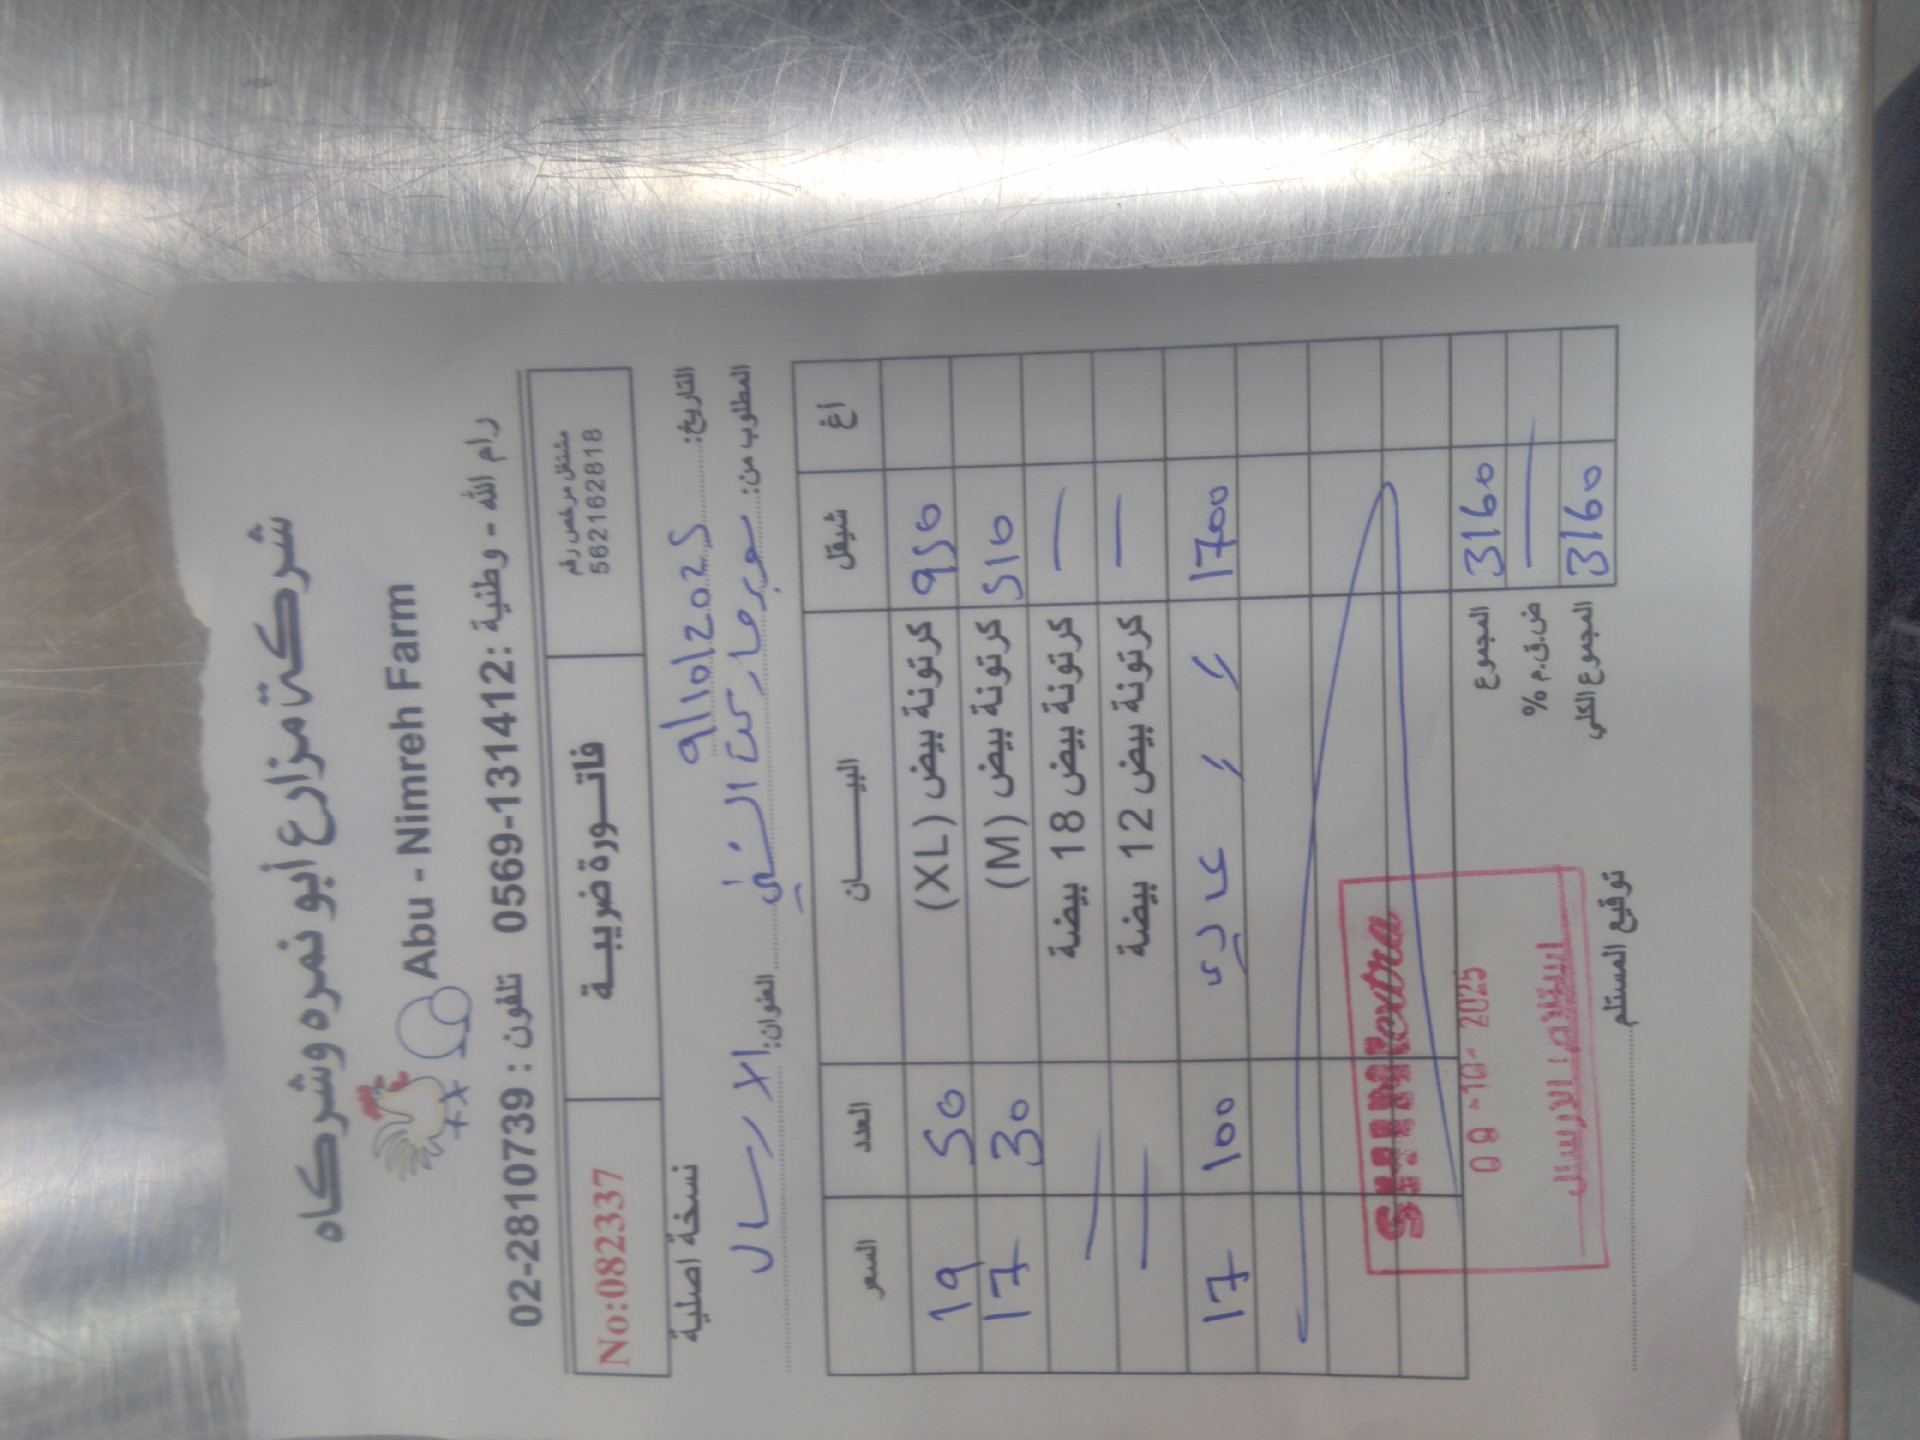 شركة مزارع أبو نمره وشركاه
Abu - Nimreh Farm
رام الله - وطنية : 0569-131412 تلفون : 02-2810739
مشتغل مرخص رقم
562162818
فاتـــورة ضريبيـــة
No:082337
التاريخ: 9/10/2025
نسخة اصلية
المطلوب من: سوبر ماركت الشني العنوان: الارسال
اغ شيقل البيـــــــان العدد السعر
950 كرتونة بيض (XL) 50 19
510 كرتونة بيض (M) 30 17
— كرتونة بيض 18 بيضة — —
— كرتونة بيض 12 بيضة — —
1700 〃 〃 عادي 100 17
3160 المجموع
— ض.ق.م %
3160 المجموع الكلي
extra
09 -10- 2025
استلام الارسال
توقيع المستلم